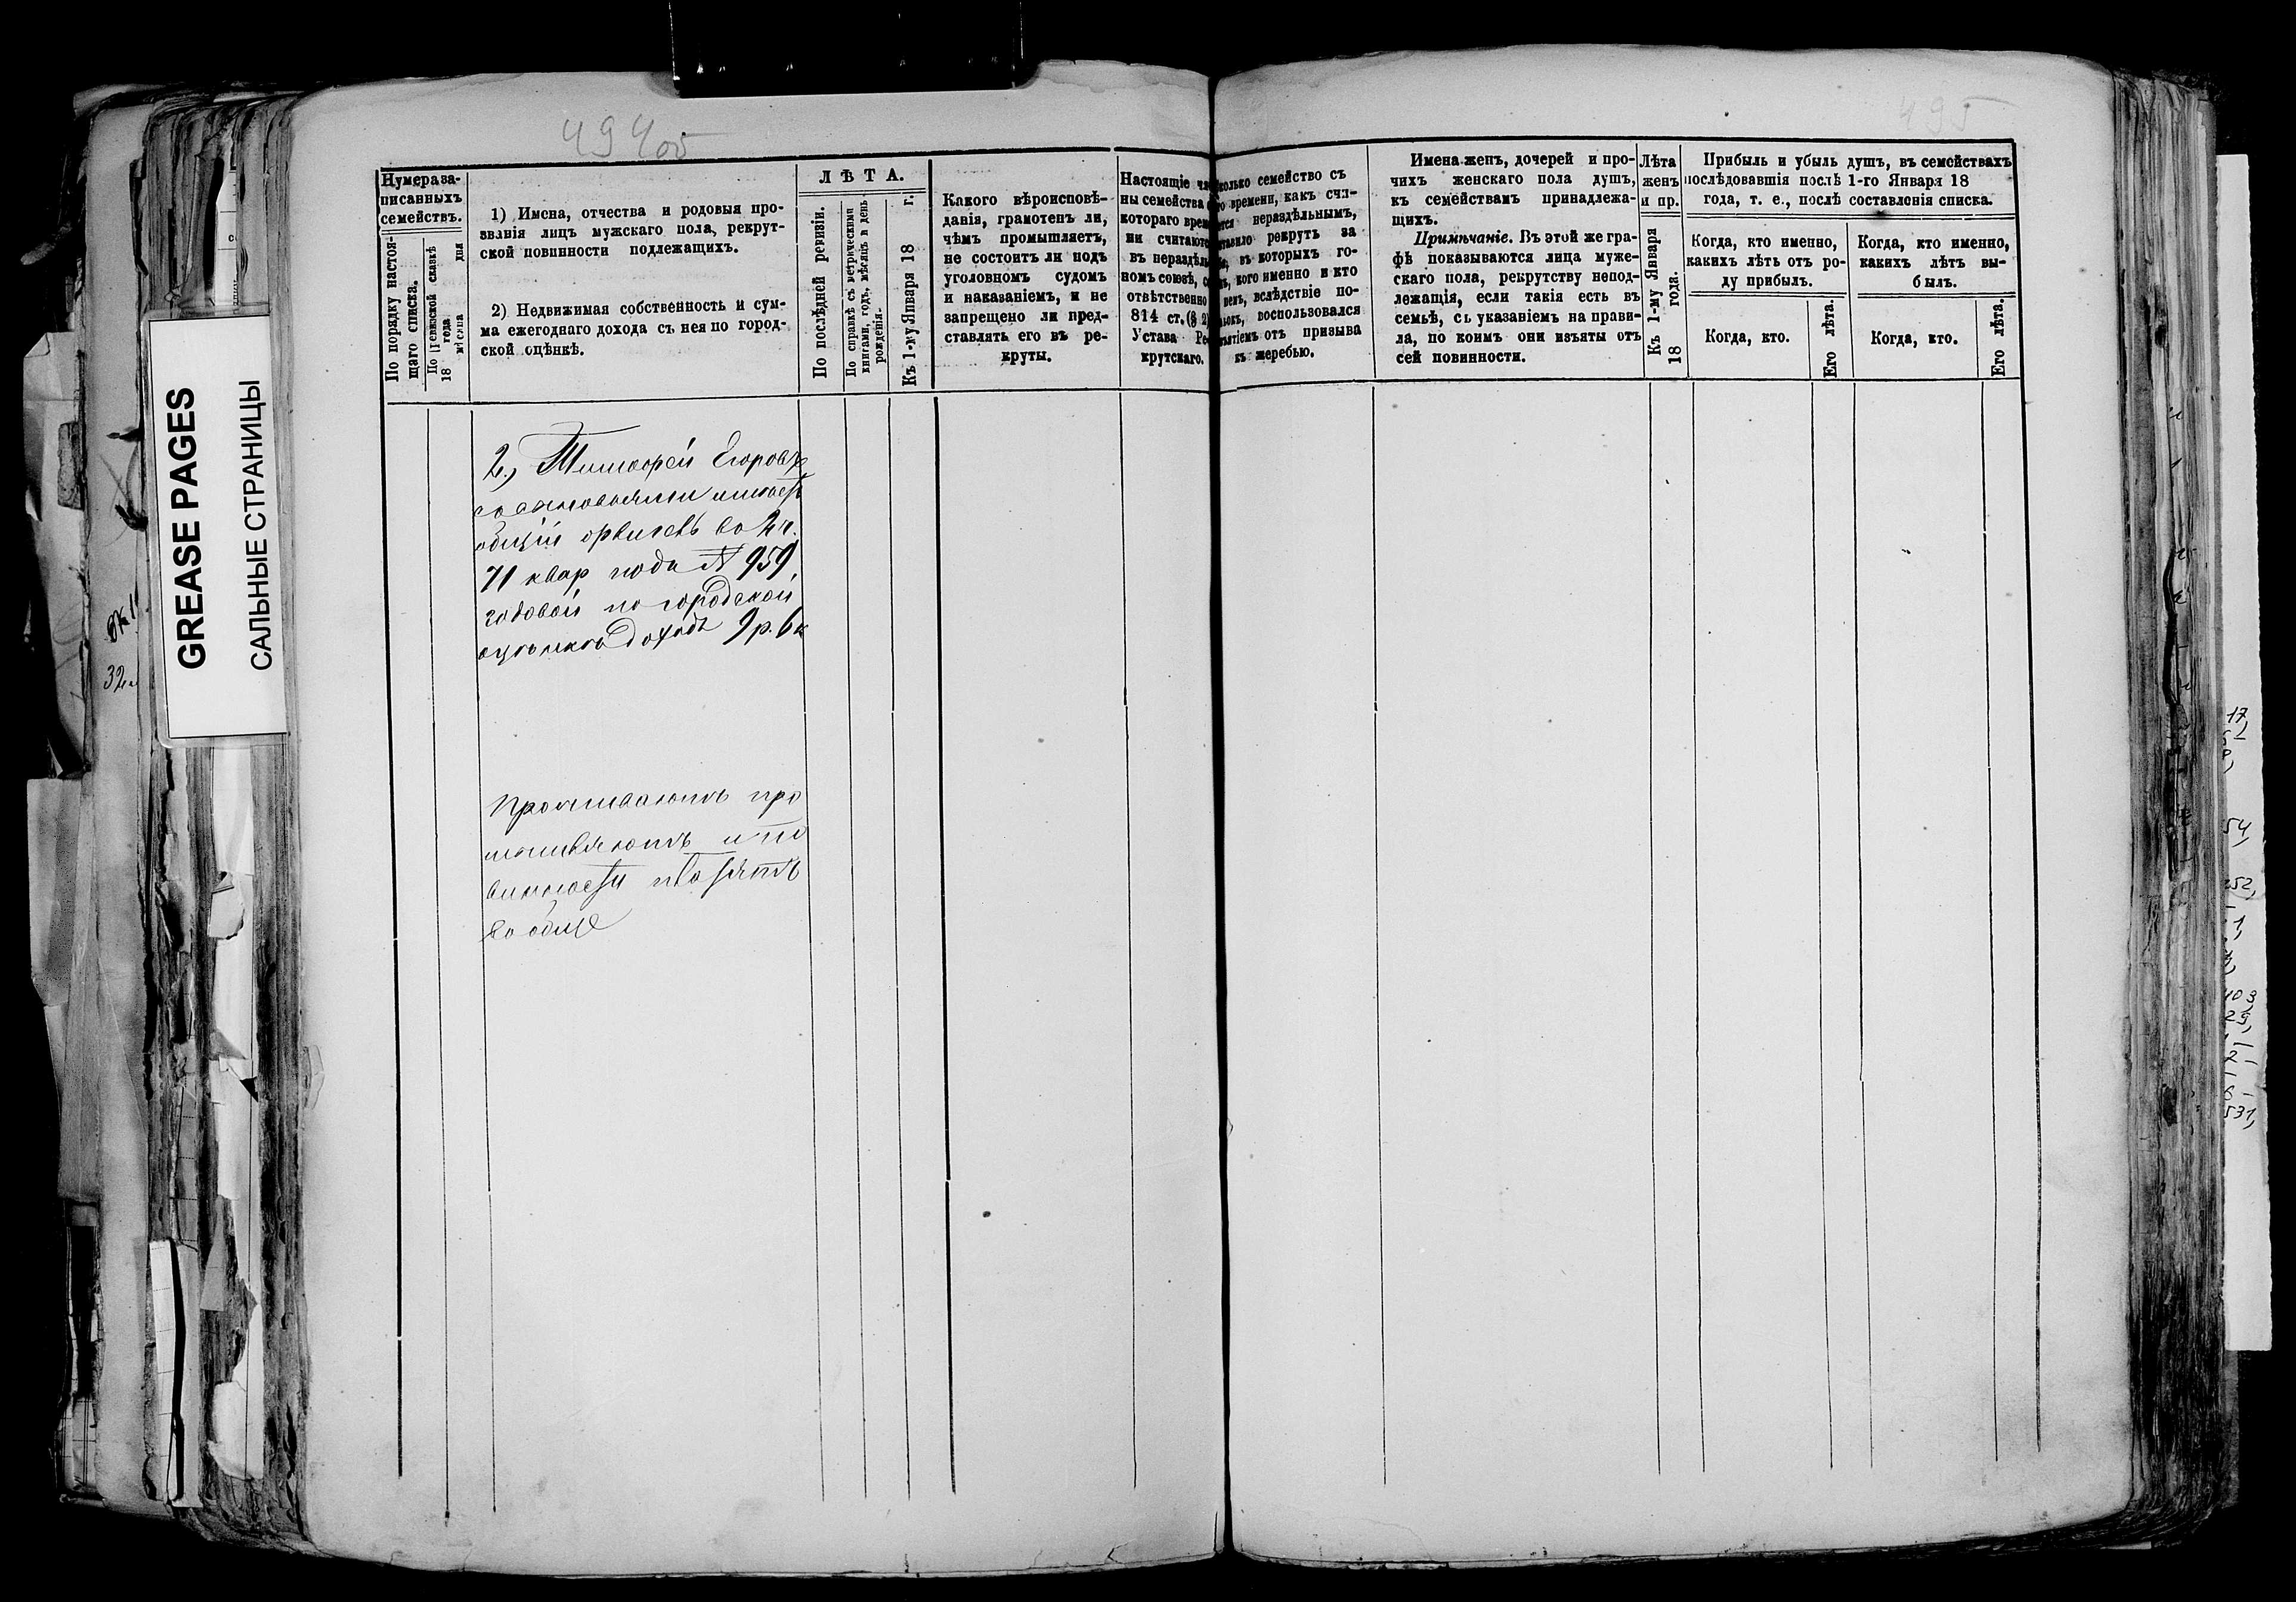 494 об
495
GREASE PAGES
САЛЬНЫЕ СТРАНИЦЫ
Нумера за-
писанныхъ
семействъ.
По порядку настоя-
щаго списка.
По ревизской сказкѣ
18 года
мѣсяца дня
1) Имена, отчества и родовыя про-
званія лицъ мужскаго пола, рекрут-
ской повинности подлежащихъ.
2) Недвижимая собственность и сум-
ма ежегоднаго дохода съ нея по город-
ской оцѣнкѣ.
ЛѢТА.
По послѣдней ревизіи.
По справкѣ съ метрическими
книгами, годъ, мѣсяцъ и день
рожденія.
Къ 1-му Января 18 г.
Какого вѣроисповѣ-
данія, грамотенъ ли,
чѣмъ промышляетъ,
не состоитъ ли подъ
уголовномъ судомъ
и наказаніемъ, и не
запрещено ли пред-
ставлять его въ ре-
круты.
Настоящіе чле
ны семейства
котораго врем
ни считаютс
въ нераздѣль
номъ союзѣ, со
отвѣтственно
814 ст. (§ 2)
Устава Ре
крутскаго.
колько семейство съ
го времени, какъ счи-
ется нераздѣльнымъ,
ставило рекрутъ за
въ которыхъ го-
кого именно и кто
вслѣдствіе по-
воспользовался
ъятіемъ отъ призыва
къ жеребью.
Имена женъ, дочерей и про-
чихъ женскаго пола душъ,
къ семействамъ принадлежа-
щихъ.
Примѣчаніе. Въ этой же гра-
фѣ показываются лица муже-
скаго пола, рекрутству непод-
лежащія, если такія есть въ
семьѣ, съ указаніемъ на прави-
ла, по коимъ они изъяты отъ
сей повинности.
Лѣта
женъ
и пр.
Къ 1-му Января
18 года.
Прибыль и убыль душъ, въ семействахъ
послѣдовавшія послѣ 1-го Января 18
года, т. е., послѣ составленія списка.
Когда, кто именно,
какихъ лѣтъ отъ ро-
ду прибылъ.
Когда, кто.
Его лѣта.
Когда, кто именно,
какихъ лѣтъ вы-
былъ.
Когда, кто.
Его лѣта.
2, Тимофей Егоровъ
со сыновьями имѣетъ
общій флигель во 2 ч.
71 квар подъ № 959
годовой по городской
оцѣнкѣ доходъ 9 р. 6 к
Проживаютъ про
мышляютъ и по
винности платятъ
вообще